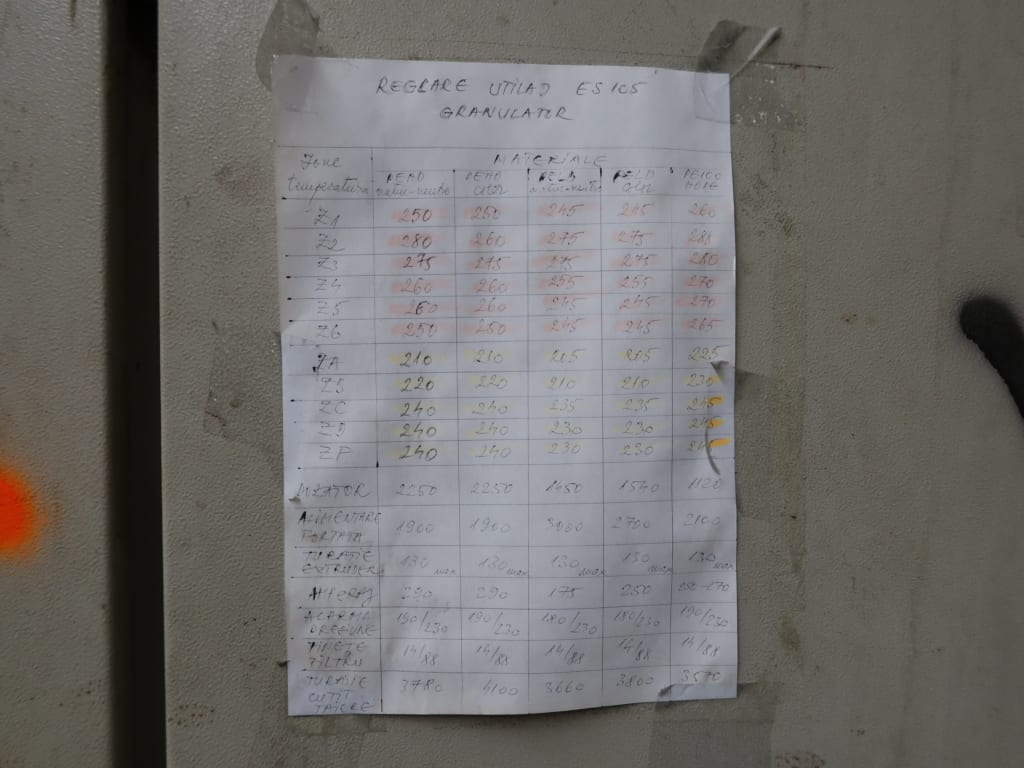 REGLARE UTILAJ ES 105
GRANULATOR
Zone temperatura MATERIALE
PEHD natur-neutro PEHD color natur-neutro PELD color PE100 HDPE
Z1 250 250 245 245 260
Z2 280 260 275 275 285
Z3 275 275 275 275 280
Z4 260 260 255 255 270
Z5 260 260 245 245 270
Z6 250 250 245 245 265
ZA 210 210 205 205 225
220 220 210 210 230
ZC 240 240 235 235 245
ZD 240 240 230 230 245
ZP 240 240 230 230 245
2250 2250 1450 1540 1120
ALIMENTARE PORTATA 1900 1900 3000 2700 2100
TURATIE EXTRUDER 130 max 130 max 130 max 130 max 130 max
AMPERAJ 290 290 175 250 250-270
ALARMA PRESIUNE 190/230 190/230 180/230 180/230 190/230
FILTRU 14/88 14/88 14/88 14/88 14/88
TURATIE CUTIT TAIERE 3780 4100 3660 3800